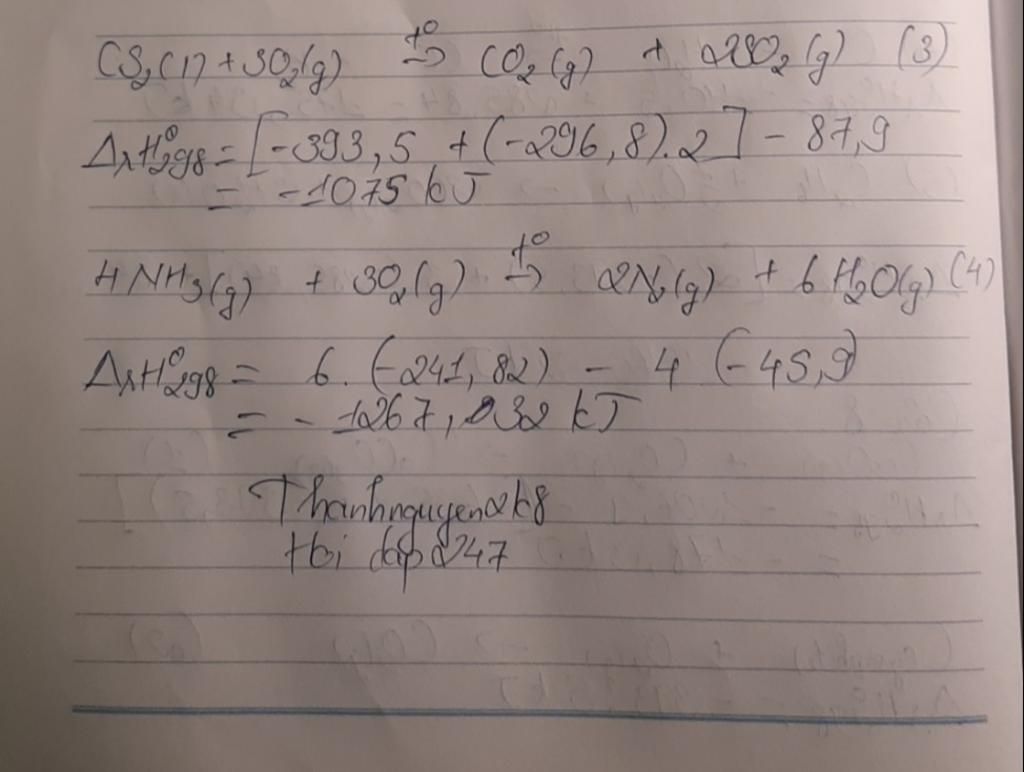 t⁰
CS₂(l) + 3O₂(g) → CO₂(g) + 2SO₂(g) (3)
ΔᵣH⁰₂₉₈ = [-393,5 + (-296,8).2] - 87,9
= -1075 kJ
t⁰
4NH₃(g) + 3O₂(g) → 2N₂(g) + 6H₂O(g) (4)
ΔᵣH⁰₂₉₈ = 6.(-241,82) - 4(-45,9)
= -1267,32 kJ
Thanhnguyen2k8
Hoi dap 247